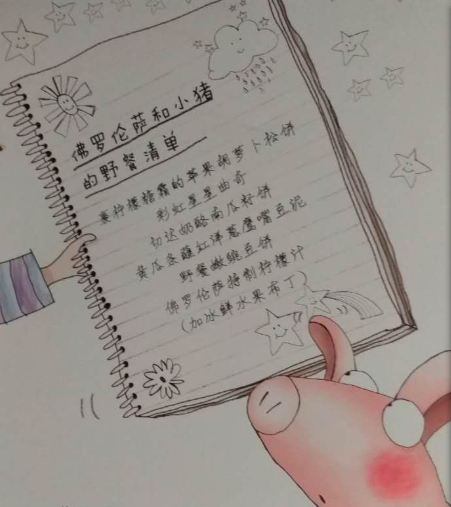 佛罗伦萨和小猪
的野餐清单
塞柠檬糖霜的苹果胡萝卜松饼
彩虹星星曲奇
切达奶酪南瓜籽饼
黄瓜条蘸红洋葱鹰嘴豆泥
野餐嫩豌豆饼
佛罗伦萨特制柠檬汁
(加冰鲜水果布丁)